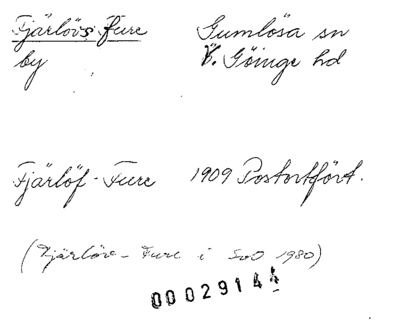 Fjärlövs Fure Gumlösa sn
by V. Göinge hd
Fjärlöf-Fure 1909 Postortfört.
(Fjärlöv-Fure i SvO 1980)
00029144